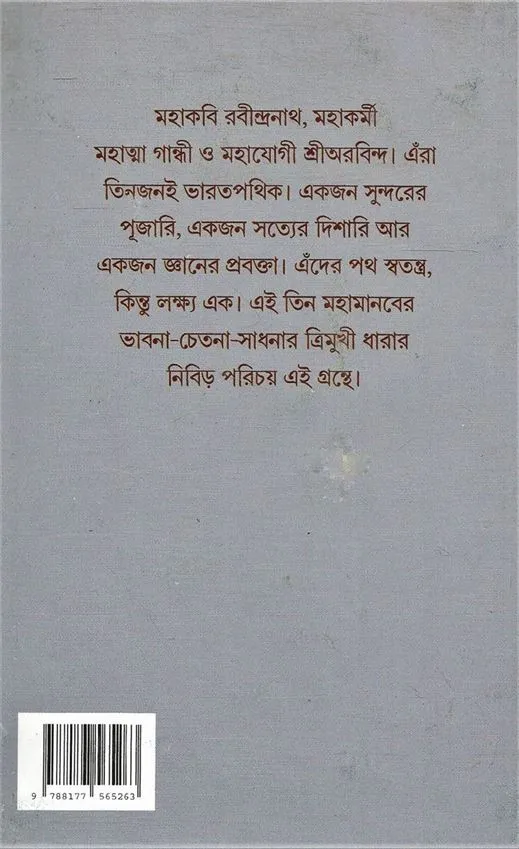 মহাকবি রবীন্দ্রনাথ, মহাকর্মী
মহাত্মা গান্ধী ও মহাযোগী শ্রীঅরবিন্দ। এঁরা
তিনজনই ভারতপথিক। একজন সুন্দরের
পূজারি, একজন সত্যের দিশারি আর
একজন জ্ঞানের প্রবক্তা। এঁদের পথ স্বতন্ত্র,
কিন্তু লক্ষ্য এক। এই তিন মহামানবের
ভাবনা-চেতনা-সাধনার ত্রিমুখী ধারার
নিবিড় পরিচয় এই গ্রন্থে।
9 788177 565263